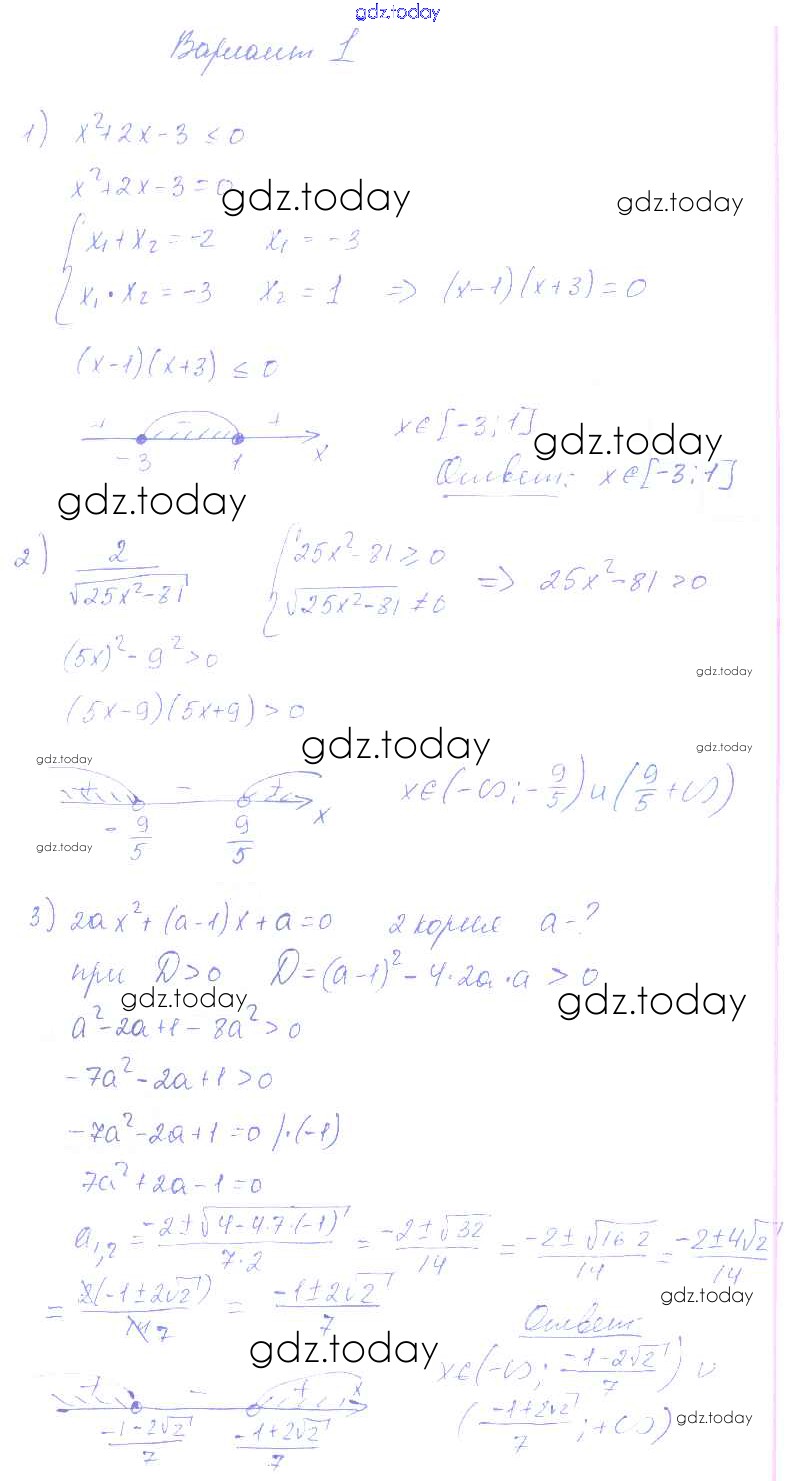 gdz.today
Вариант 1
1) x²+2x-3 ≤ 0
x²+2x-3=0
gdz.today gdz.today
{ x₁+x₂ = -2 x₁ = -3
x₁·x₂ = -3 x₂ = 1 => (x-1)(x+3)=0
(x-1)(x+3) ≤ 0
+ - +
-3 1 x
x∈[-3;1]
gdz.today
Ответ: x∈[-3;1]
gdz.today
2) 2/√25x²-81 { 25x²-81 ≥ 0
√25x²-81 ≠ 0 => 25x²-81 > 0
(5x)²-9² > 0
gdz.today
(5x-9)(5x+9) > 0
gdz.today gdz.today
gdz.today
+ - +
-9/5 9/5 x
x∈(-∞;-9/5)∪(9/5 +∞)
gdz.today
3) 2ax²+(a-1)x+a=0 2 корня a-?
при D>0 D=(a-1)²-4·2a·a > 0
gdz.today gdz.today
a²-2a+1-8a² > 0
-7a²-2a+1 > 0
-7a²-2a+1=0 |·(-1)
7a²+2a-1=0
a₁,₂ = -2±√4-4·7·(-1)/7·2 = -2±√32/14 = -2±√16·2/14 = -2±4√2/14
gdz.today
= 2(-1±2√2)/14 7 = -1±2√2/7
Ответ:
gdz.today
x∈(-∞; -1-2√2/7) ∪
+ - + x
-1-2√2/7 -1+2√2/7
(-1+2√2/7 ;+∞) gdz.today